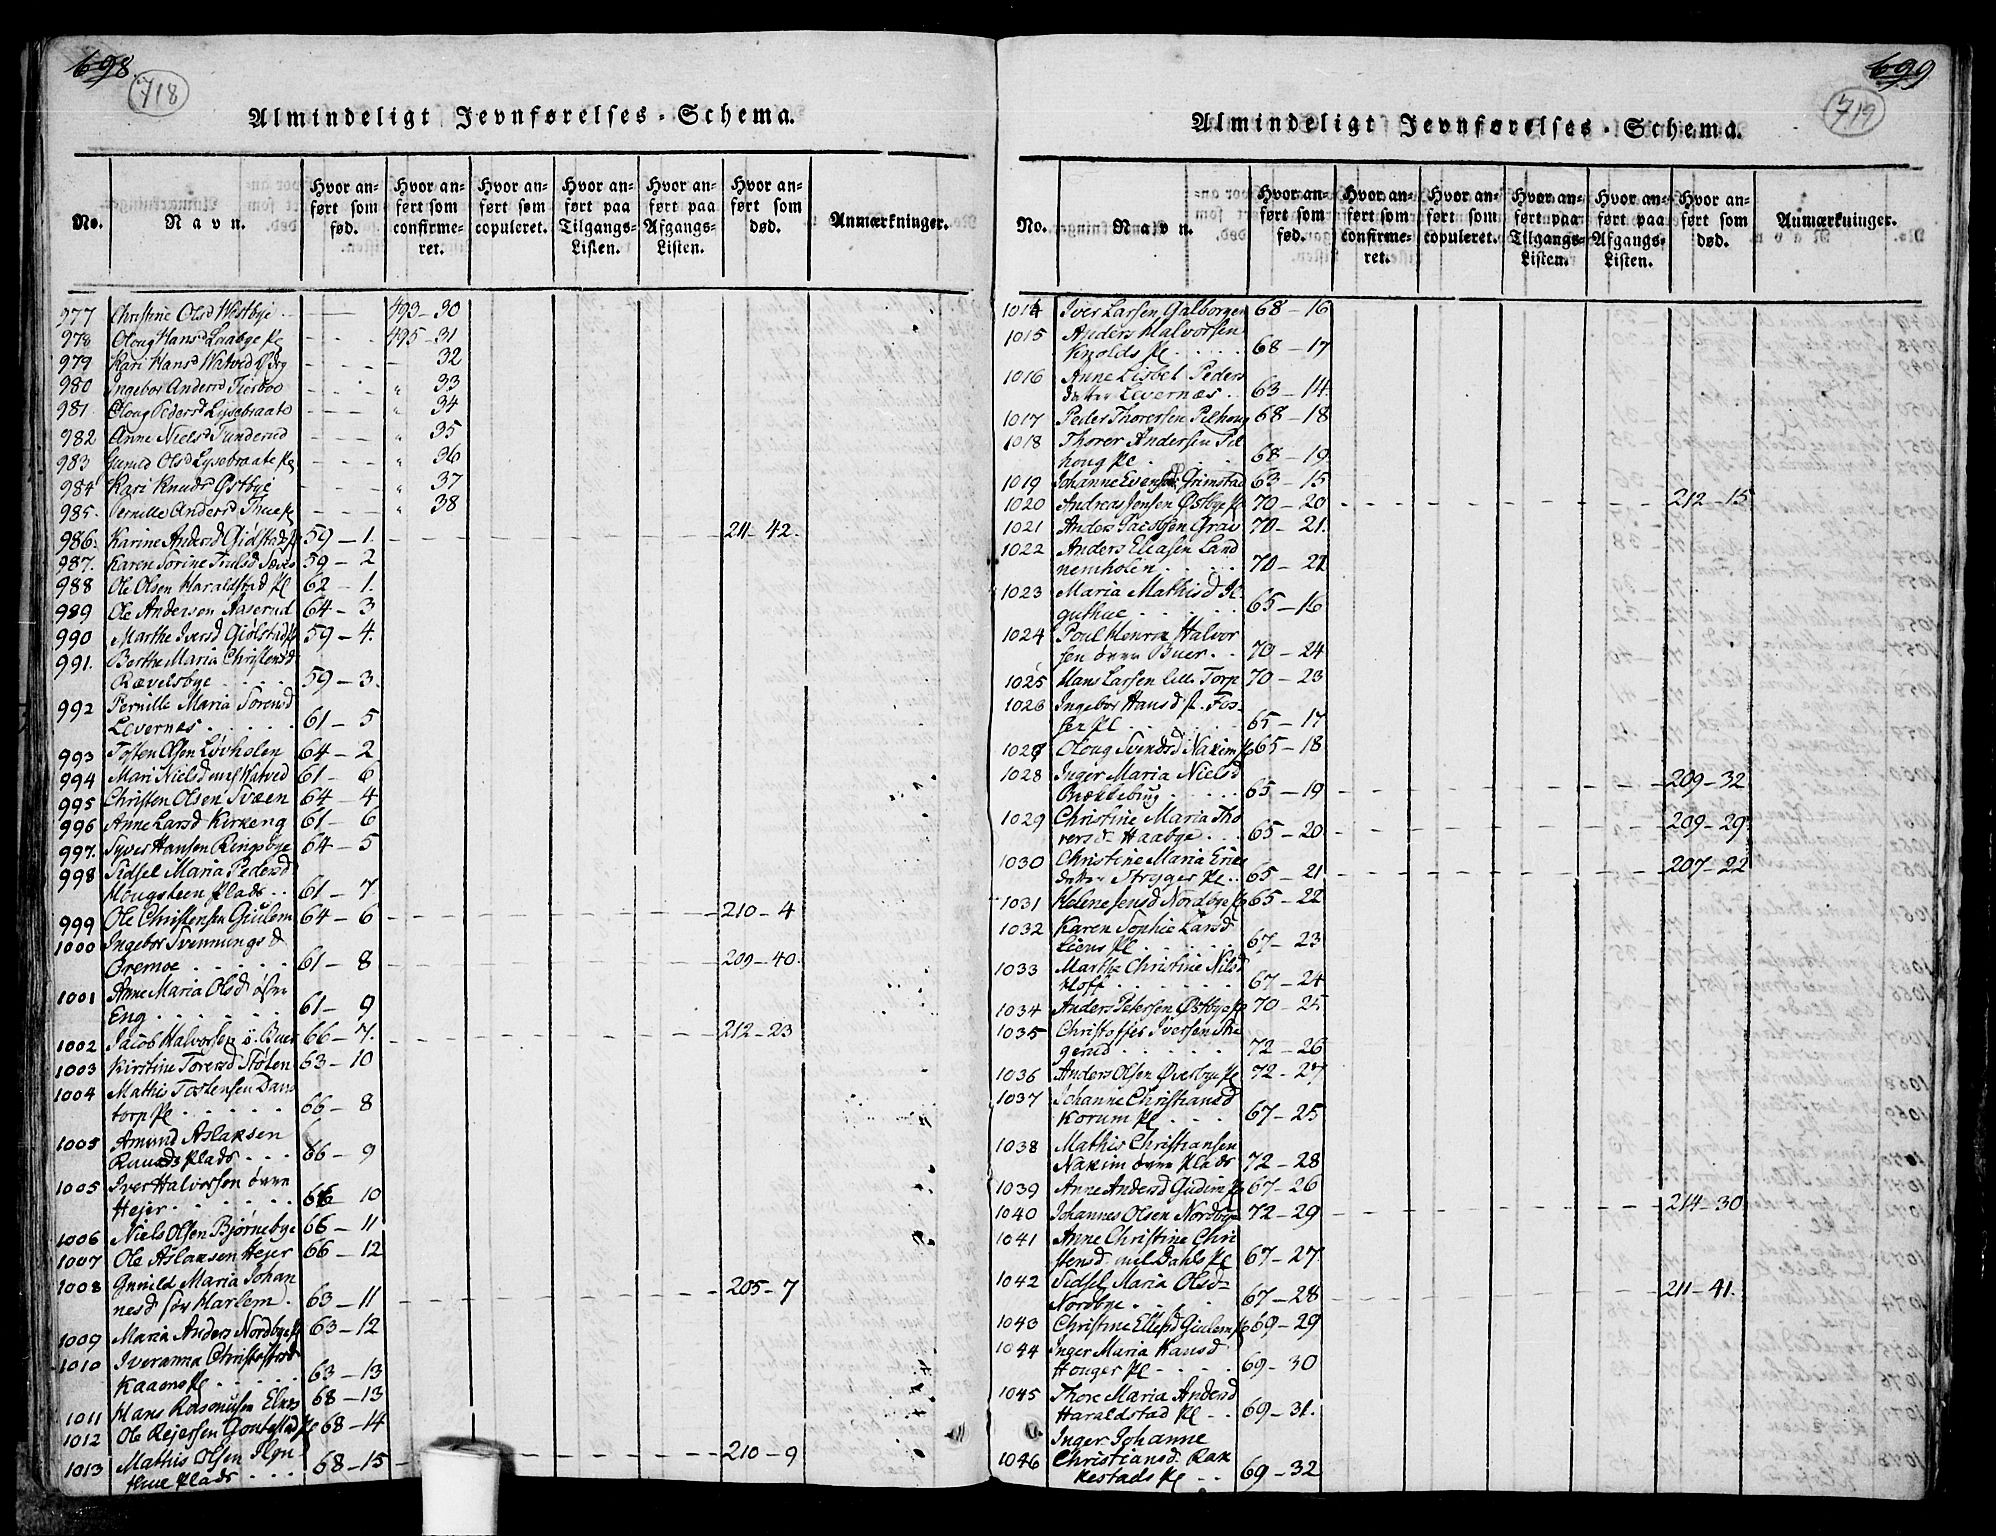 698
718
Almindeligt Jevnførelses-Schema.
No. Navn. Hvor anført som fød. Hvor anført som confirmeret. Hvor anført som copuleret. Hvor anført paa Tilgangs-Listen. Hvor anført paa Afgangs-Listen. Hvor anført som død. Anmærkninger.
977 Christine Olsd Westbye 493-30
978 Oloug Hansd Laabye Pl 495-31
979 Kari Hansd 32
980 Ingebor Andersd 33
981 Oloug Pedersd Lysebraate 34
982 Anne Nielsd Funderud 35
983 Gunild Olsd Lysebraate Pl 36
984 Kari Knudsd Østbye 37
985. Pernille Andersd 38
986. Karine Andersd 59-1. 211-42.
987. Karen Sorine 59-2
988 Ole Olsen Haraldstad Pl 62-1.
989 Ole Andersen Aaserud 64-3
990 Marthe Iversd Giølstad Pl 59-4.
991. Berthe Maria Christensd
Rævelsbye 59-3.
992 Pernille Maria Sørensd
Levernes 61-5
993 Tosten Olsen Løvholen 64-2
994 Mari Nielsd 61-6
995 Christen Olsen Svæen 64-4
996 Anne Larsd Kirkeng 61-6
997. Syver Hansen Ringsbye 64-5
998 Sidsel Maria Pedersd
Hougsteen Plads 61-7
999 Ole Christensen Giulem 64-6 210-4
1000 Ingebor Svennungsd
Oremoe 61-8 209-40.
1001 Anne Maria Olsd
Eng 61-9
1002 Jacob Halvorsen ö. Buer 66-7. 212-23
1003 Kirstine Toresd Stolen 63-10
1004 Mathis Tostensen Dans
torp Pl 66-8
1005 Amund Aslaksen
Plads 66-9
1005 Iver Halvorsen øvre
Hejer 66-10
1006 Niels Olsen Bjørnebye 66-11
1007 Ole Aslaksen Hejer 66-12
1008 Gunild Maria Johan
nesd Harlem 63-11 205-7
1009 Maria Andersd Nordbye Pl 63-12
1010 Iveranna
Pl 63-13
1011 Hans Rasmusen 68-13
1012 Ole Rejersen 68-14
1013 Mathis Olsen
hue Plads 68-15 210-9
699
719
Almindeligt Jevnførelses-Schema.
No. Navn. Hvor anført som fød. Hvor anført som confirmeret. Hvor anført som copuleret. Hvor anført paa Tilgangs-Listen. Hvor anført paa Afgangs-Listen. Hvor anført som død. Anmærkninger.
1014 Iver Larsen Galborgen 68-16
1015 Anders Halvorsen
Knolds Pl 68-17
1016 Anne Lisbet Peders
datter Levernæs 63-14.
1017 Peder Thoresen Pilhoug 68-18
1018 Thorer Andersen Pil
houg Pl 68-19
1019 Johanne Evensd Grimstad 63-15
1020 Andreas Jensen Østbye Pl 70-20 212-15
1021 Anders Jacobsen Grav 70-21.
1022 Anders Eliasen Land
nemholen 70-22
1023 Maria Mathisd
65-16
1024 Poul Henric Halvor
sen övre Buer 70-24
1025 Hans Larsen lille Torpe 70-23
1026 Ingebor Hansd Fos
ser Pl 65-17
1027 Oloug Svendsd Nakim Pl 65-18
1028 Inger Maria Nielsd
65-19 209-32
1029 Christine Maria Tho
versd Haabye 65-20 209-29
1030 Christine Maria Erics
datter Strygger Pl 65-21 207-22
1031 Helene Jensd Nordbye Pl 65-22
1032 Karen Sophie Larsd
Liens Pl 67-23
1033 Marthe Christine Nilsd
Hoff 67-24
1034 Anders Petersen Østbye Pl 70-25
1035 Christoffer Iversen
gerud 72-26
1036 Anders Olsen Østbye Pl 72-27
1037 Johanne Christiansd
Korum Pl 67-25
1038 Mathis Christiansen
Nakim övre Plads 72-28
1039 Anne Andersd Gudim Pl 67-26
1040 Johannes Olsen Nordbye 72-29 214-30
1041 Anne Christine Chri
stensd Dahls Pl 67-27.
1042 Sidsel Maria Olsd
Nordbye 67-28 211-41.
1043 Christine Ellefsd Giulem Pl 69-29
1044 Inger Maria Hansd
Houger Pl 69-30
1045 Thore Maria Andersd
Haraldstad Pl 69-31.
1046 Inger Johanne
Christiansd Rak
kestads Pl 69-32